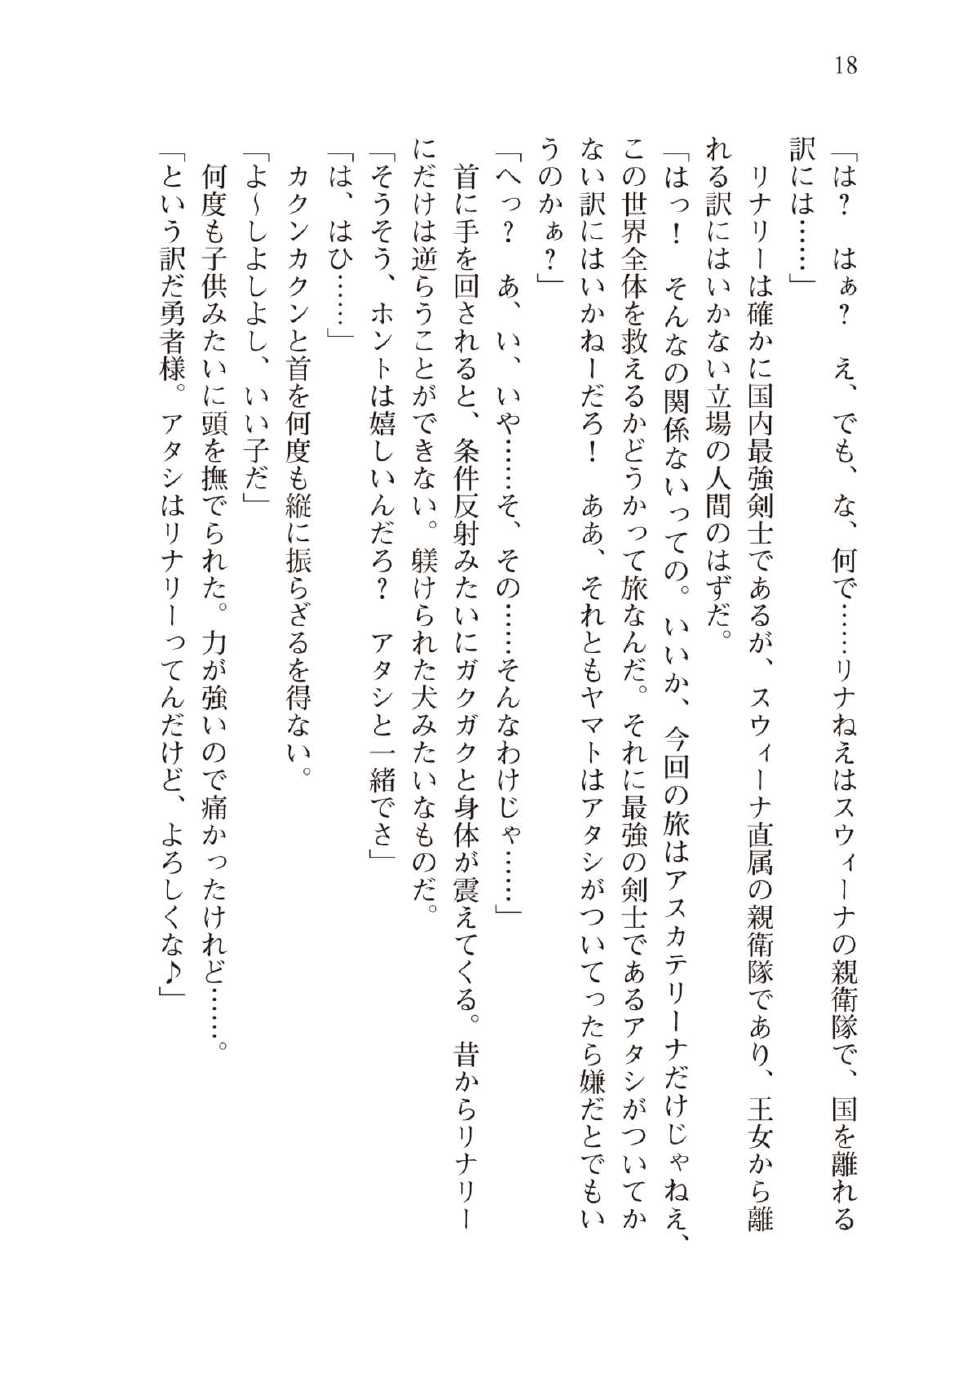 18
「は？　はぁ？　え、でも、な、何で……リナねえはスウィーナの親衛隊で、国を離れる
訳には……」
　リナリーは確かに国内最強剣士であるが、スウィーナ直属の親衛隊であり、王女から離
れる訳にはいかない立場の人間のはずだ。
「はっ！　そんなの関係ないっての。いいか、今回の旅はアスカテリーナだけじゃねえ、
この世界全体を救えるかどうかって旅なんだ。それに最強の剣士であるアタシがついてか
ない訳にはいかねーだろ！　ああ、それともヤマトはアタシがついてったら嫌だとでもい
うのかぁ？」
「へっ？　あ、い、いや……そ、その……そんなわけじゃ……」
　首に手を回されると、条件反射みたいにガクガクと身体が震えてくる。昔からリナリー
にだけは逆らうことができない。躾けられた犬みたいなものだ。
「そうそう、ホントは嬉しいんだろ？　アタシと一緒でさ」
「は、はひ……」
　カクンカクンと首を何度も縦に振らざるを得ない。
「よ〜しよしよし、いい子だ」
　何度も子供みたいに頭を撫でられた。力が強いので痛かったけれど……。
「という訳だ勇者様。アタシはリナリーってんだけど、よろしくな♪」